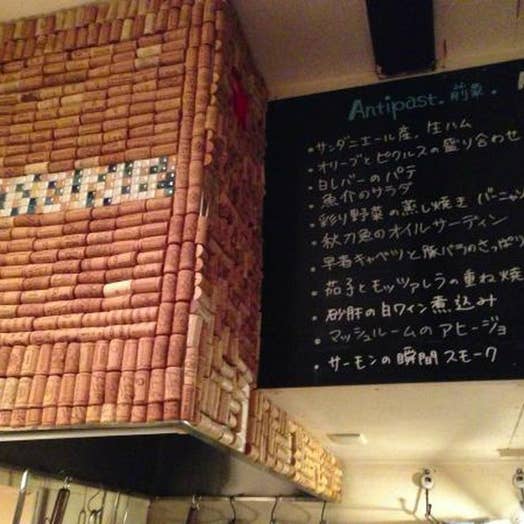 Antipast. 前菜.
・サンダニエール産. 生ハム
・オリーブとピクルスの盛り合わせ
・白レバーのパテ
・魚介のサラダ
・彩り野菜の蒸し焼き バーニャ
・秋刀魚のオイルサーディン
・早春キャベツと豚バラのさっぱり
・茄子とモッツァレラの重ね焼
・砂肝の白ワイン煮込み
・マッシュルームのアヒージョ
・サーモンの瞬間スモーク